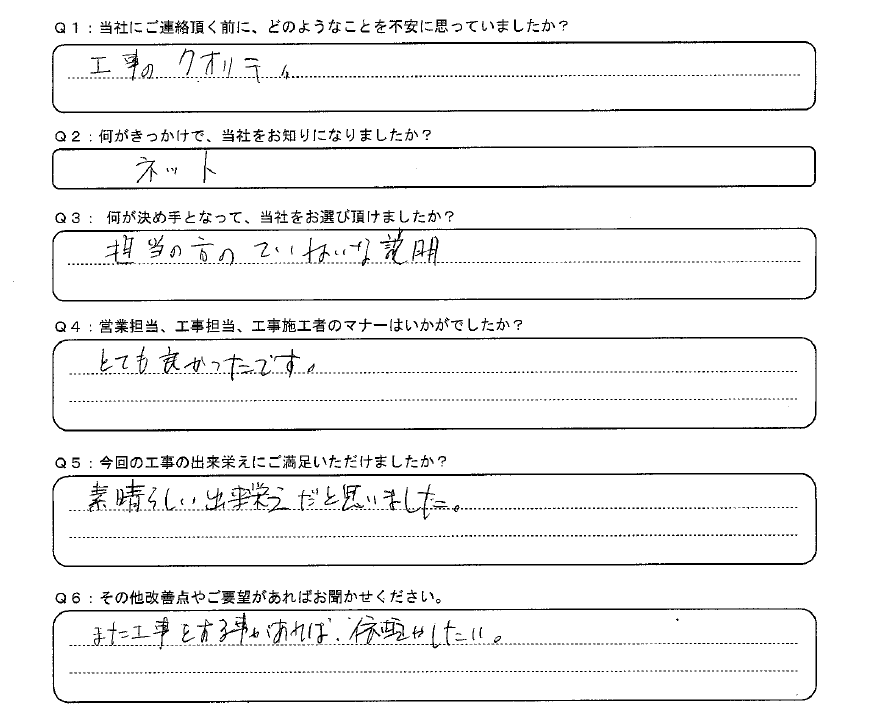 Q1：当社にご連絡頂く前に、どのようなことを不安に思っていましたか？
工事のクオリティ
Q2：何がきっかけで、当社をお知りになりましたか？
ネット
Q3： 何が決め手となって、当社をお選び頂けましたか？
担当の方のていねいな説明
Q4：営業担当、工事担当、工事施工者のマナーはいかがでしたか？
とても良かったです。
Q5：今回の工事の出来栄えにご満足いただけましたか？
素晴らしい出来栄えだと思いました。
Q6：その他改善点やご要望があればお聞かせください。
また工事をする事があれば、依頼したい。